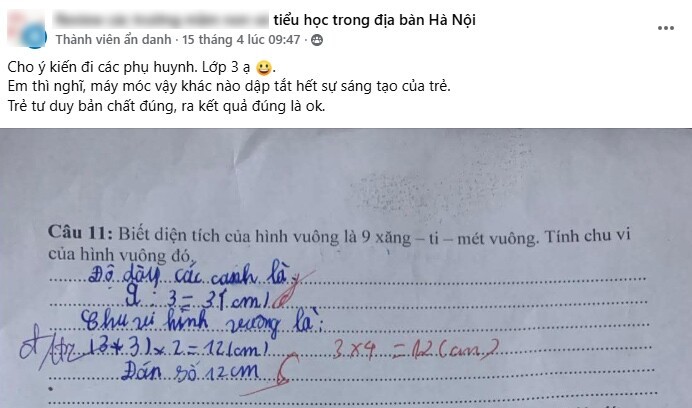 tiểu học trong địa bàn Hà Nội
Thành viên ẩn danh · 15 tháng 4 lúc 09:47 ·
Cho ý kiến đi các phụ huynh. Lớp 3 ạ 😀.
Em thì nghĩ, máy móc vậy khác nào dập tắt hết sự sáng tạo của trẻ.
Trẻ tư duy bản chất đúng, ra kết quả đúng là ok.
Câu 11: Biết diện tích của hình vuông là 9 xăng – ti – mét vuông. Tính chu vi
của hình vuông đó.
Độ dày các canh là
9 : 3 = 3 (cm)
Chu vi hình vuông là:
(3+3) x 2 = 12 (cm) 3 x 4 = 12 (cm)
Đán số 12cm